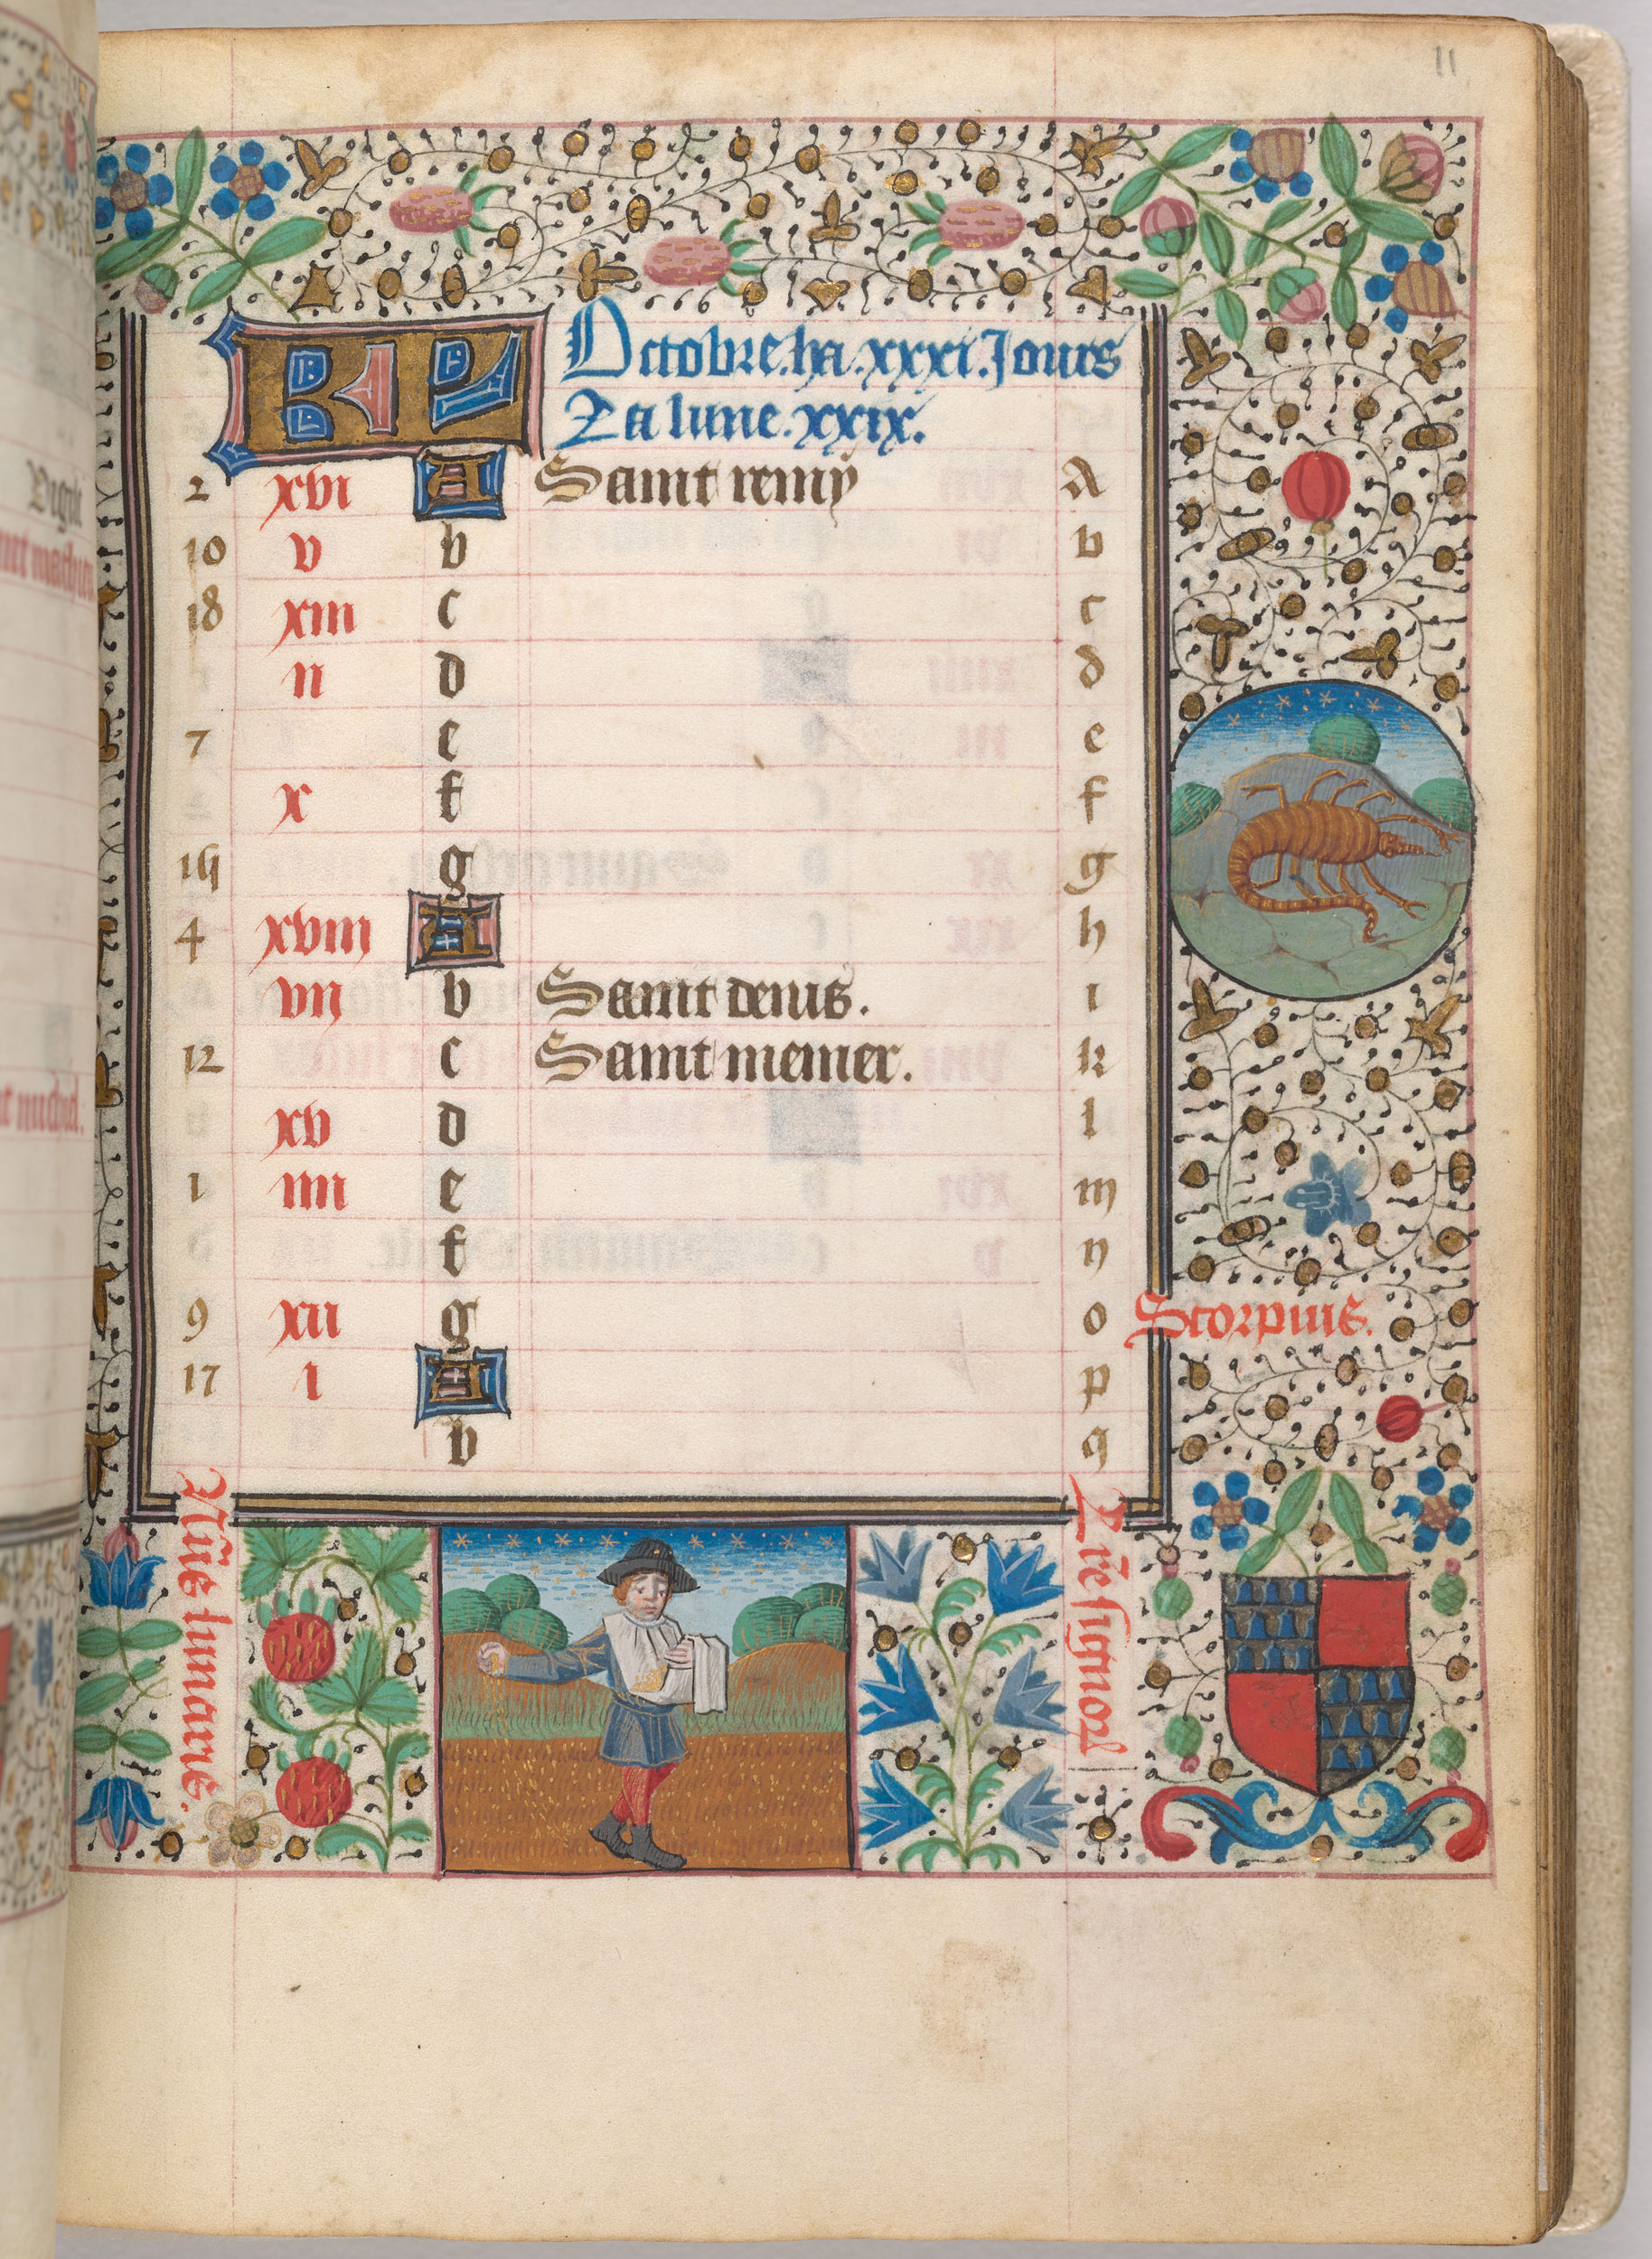 11
KL Octobre.ha.xxxi.Jours
La lune.xxix.
2 xvi A Saint remy A
10 v b b
18 xiii c c
ii d d
7 e e
x f f
15 g g
4 xviii A h
vii b Saint denis. i
12 c Saint menier. k
xv d l
1 iiii e m
f n
9 xii g o
Scorpius.
17 i A p
b q
Nũe lunaris.
Lr̃e signorū